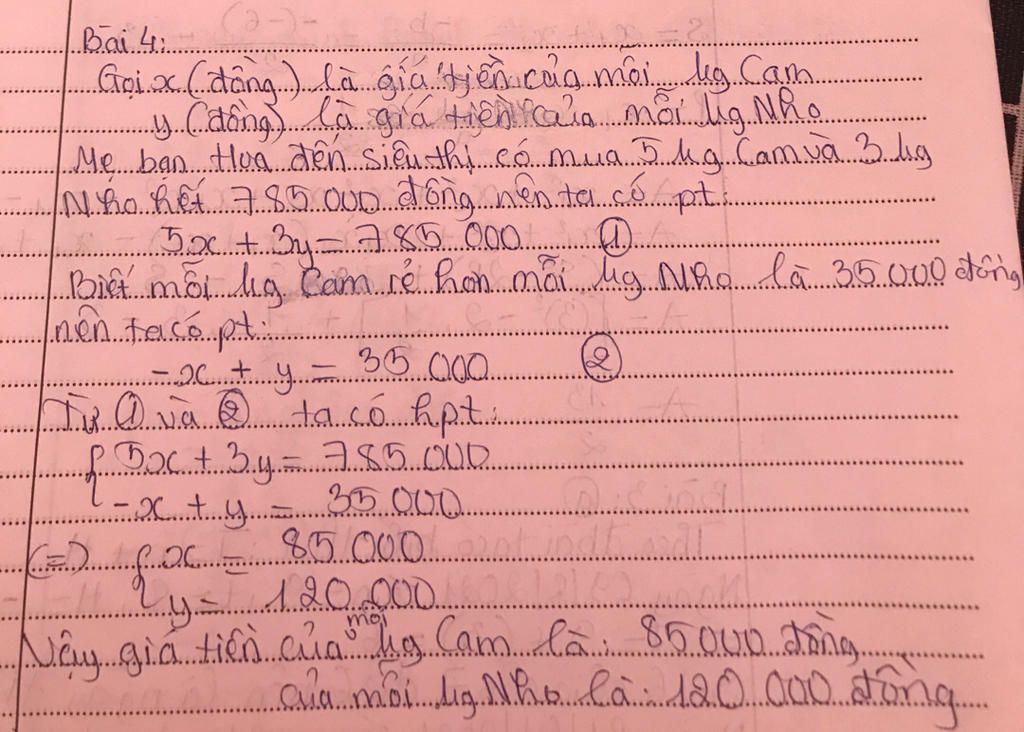 Bài 4:
Gọi x (đồng) là giá tiền của mỗi kg Cam
y (đồng) là giá tiền của mỗi kg Nho
Mẹ bạn Hoa đến siêu thị có mua 5 kg Cam và 3 kg
Nho hết 785 000 đồng nên ta có pt:
5x + 3y = 785 000 ①
Biết mỗi kg Cam rẻ hơn mỗi kg Nho là 35.000 đồng
nên ta có pt:
-x + y = 35 000 ②
Từ ① và ② ta có hpt:
{ 5x + 3y = 785 000
{ -x + y = 35 000
(=) { x = 85 000
{ y = 120.000
Vậy giá tiền của mỗi kg Cam là: 85 000 đồng
của mỗi kg Nho là: 120 000 đồng